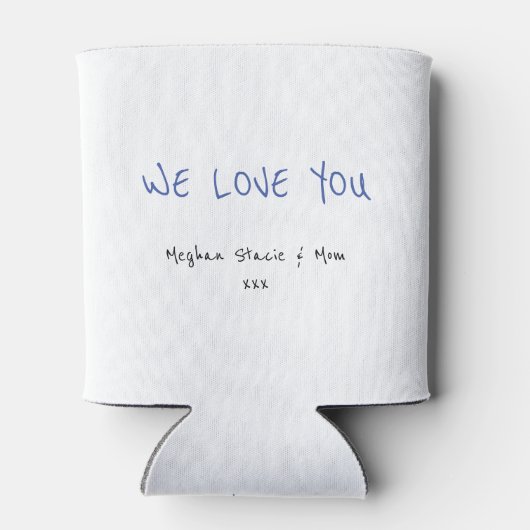 WE LOVE YOU
Meghan Stacie & Mom
xxx